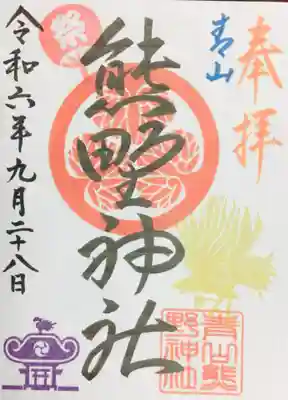 奉拝
青山
熊野神社
令和六年九月二十八日
祭
青山熊
野神社